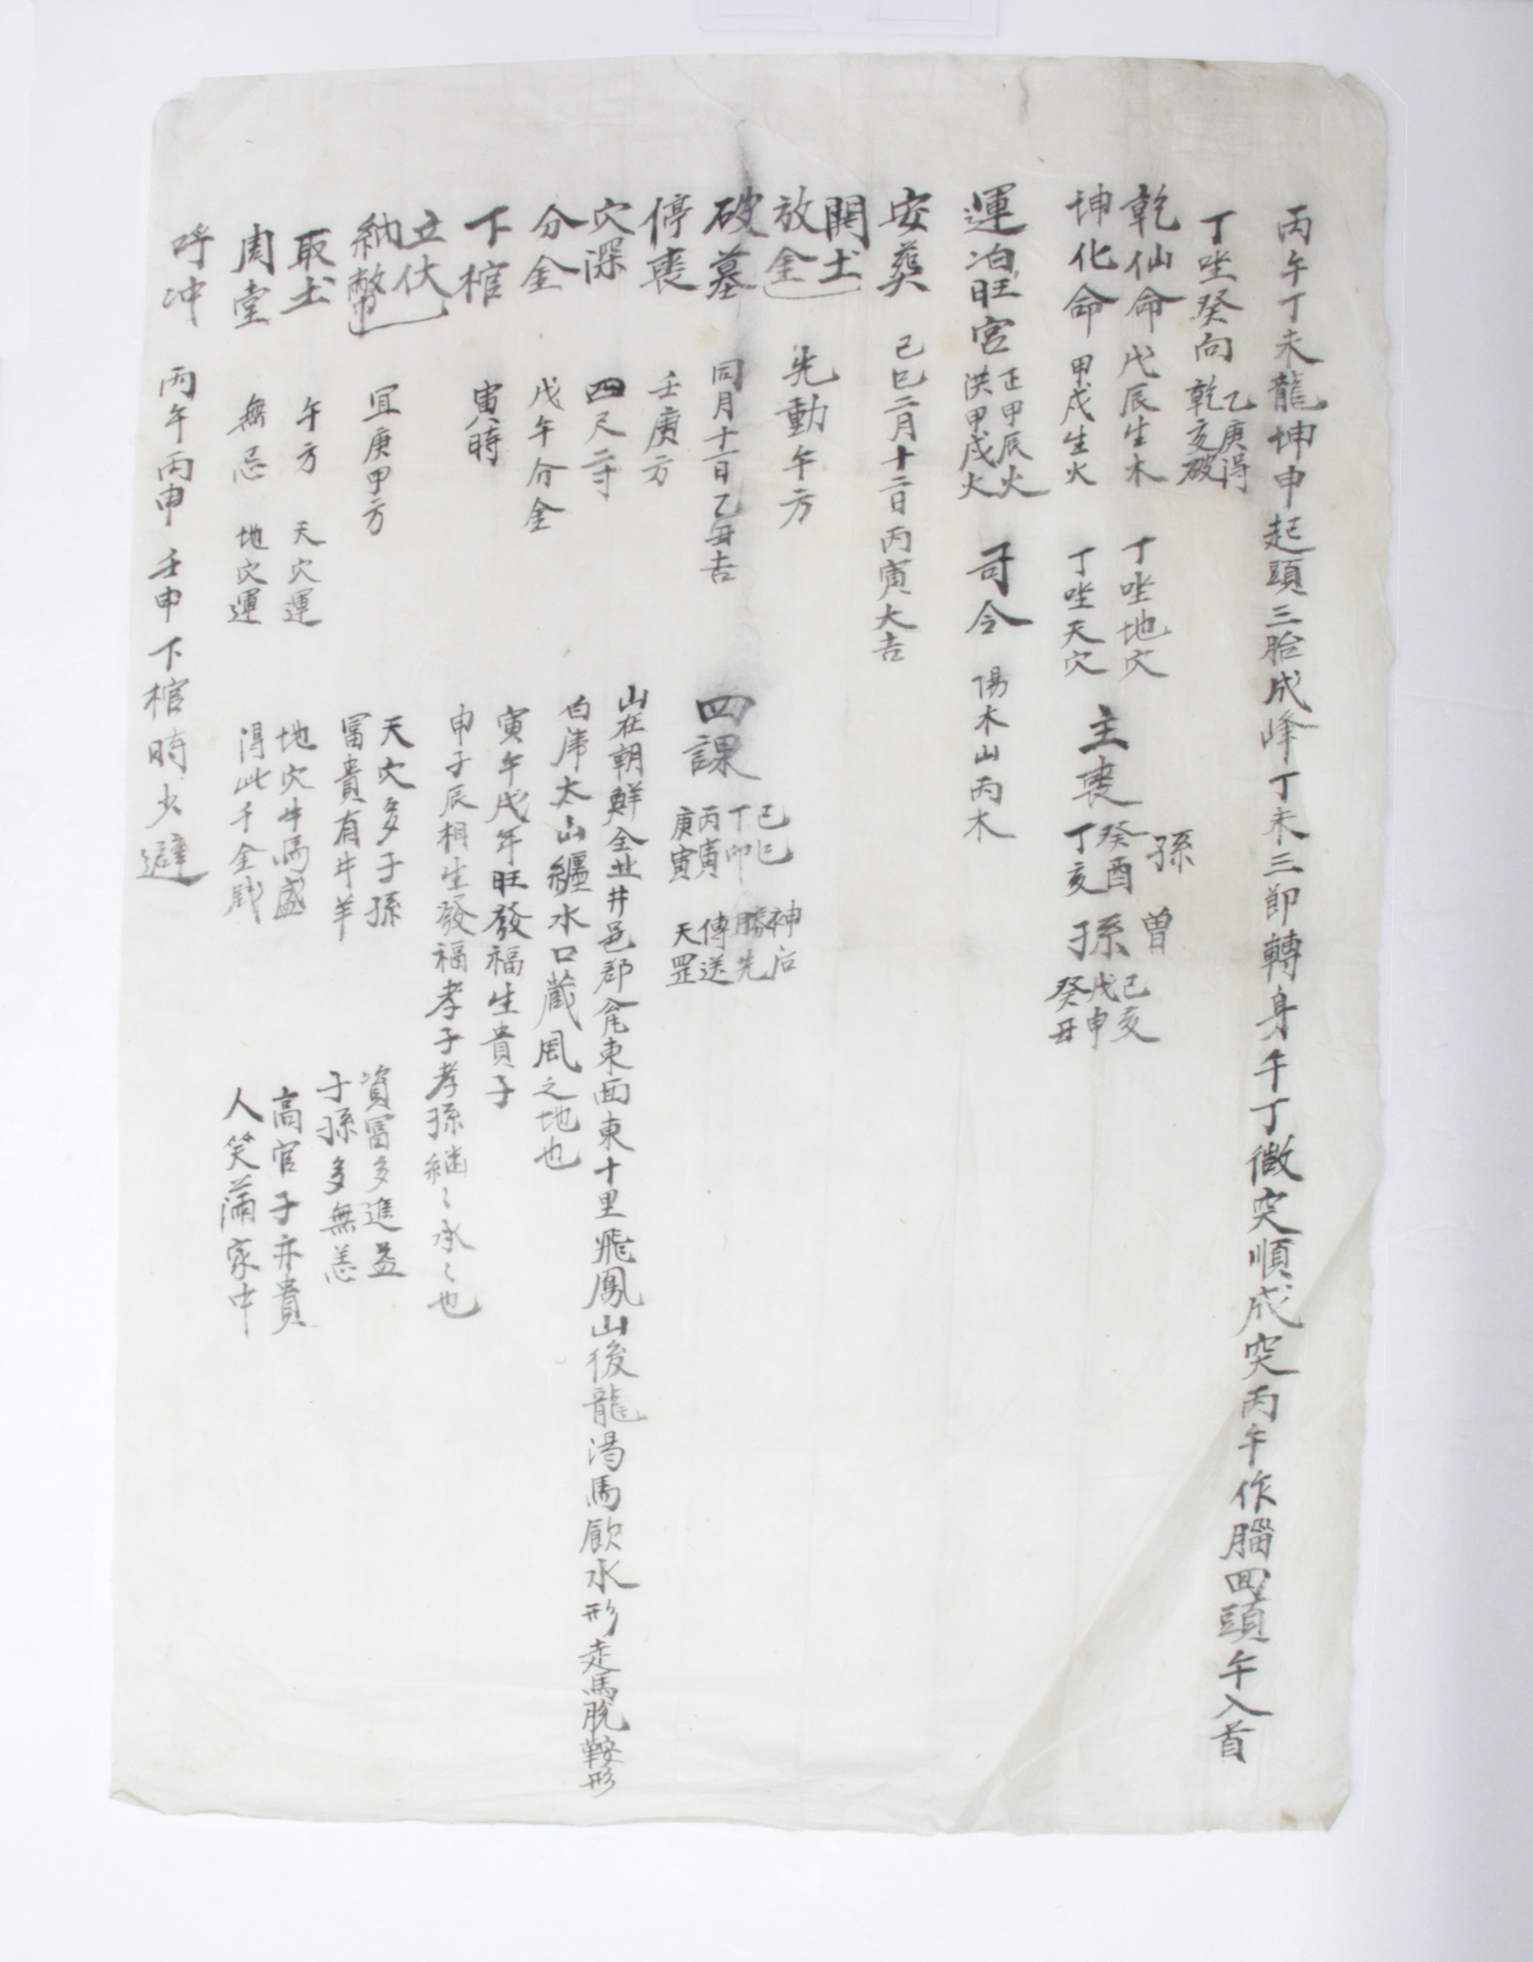 丙午丁未龍坤申起頭三胎成峰丁未三節轉身午丁微突順成突丙午作腦回頭午入首
丁坐癸向 乙庚得
乾亥破
乾仙命 戊辰生木 丁坐地穴
坤化命 甲戌生火 丁坐天穴
主喪 孫 癸酉
丁亥
孫 曾 己亥
戊申
癸丑
運泊旺宮 正甲辰火
洪甲戌火
司令 傷木山丙木
安葬 己巳二月十二日丙寅大吉
開土
放金 先動午方
破墓 同月十一日乙丑吉
四課 己巳 神后
丁卯 勝先
丙寅 傳送
庚寅 天罡
停喪 壬庚方
穴深 四尺二寸
分金 戊午分金
下棺 寅時
立伏
納幣 宜庚甲方
取土 午方
周堂 無忌
呼冲 丙午丙申 壬申下棺時少避
山在朝鮮全北井邑郡瓮東面東十里飛鳳山後龍渴馬飮水形走馬脫鞍形
白津太山纏水口藏風之地也
寅午戌年旺發福生貴子
申子辰相生發福孝子孝孫繼〻承〻也
天穴運 天穴多子孫 資富多進益
富貴有牛羊 子孫多無恙
地穴運 地穴牛馬盛 高官子亦貴
得此千金財 人笑滿家中